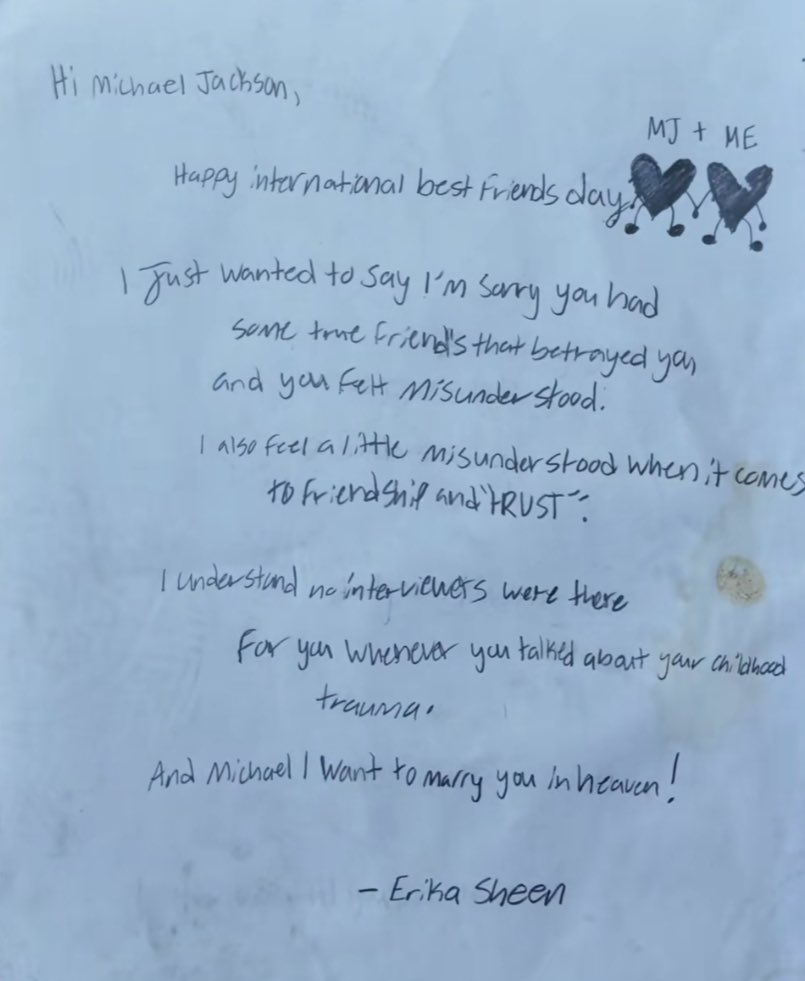 Hi Michael Jackson,
MJ + ME
Happy international best friends day
I Just wanted to say I'm sorry you had
some true friend's that betrayed you
and you felt misunderstood.
I also feel a little misunderstood when it comes
to friendship and "tRUST".
I understand no interviewers were there
For you whenever you talked about your childhood
trauma.
And Michael I want to marry you in heaven!
- Erika Sheen